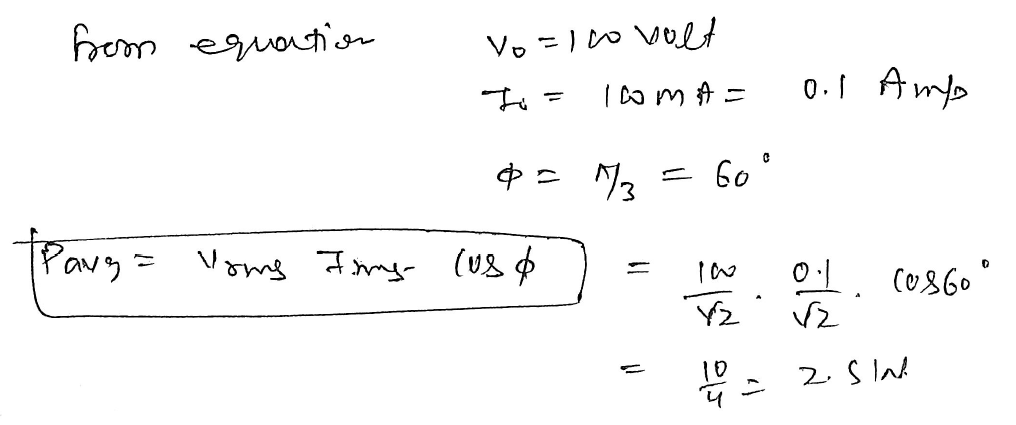 from equation V₀ = 100 volt
I₀ = 100 mA = 0.1 Amp
ϕ = π/3 = 60°
Pavg = Vrms Irms cos ϕ = 100/√2 . 0.1/√2 . cos60°
= 10/4 = 2.5W